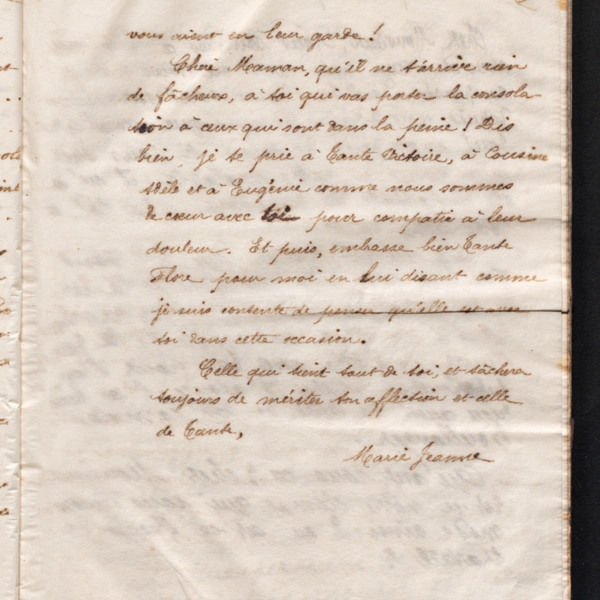 vous aient en leur garde !
Chère Maman, qu'il ne t'arrive rien
de fâcheux, à toi qui vas porter la consola
tion à ceux qui sont dans la peine ! Dis
bien, je te prie à Tante Victoire, à Cousine
Adèle et à Eugénie comme nous sommes
de cœur avec toi pour compatir à leur
douleur. Et puis, embrasse bien Tante
Flore pour moi en lui disant comme
je suis contente de penser qu'elle est avec
toi dans cette occasion.
Celle qui tient tout de toi, et tâchera
toujours de mériter ton affection et celle
de Tante,
Marie Jeanne